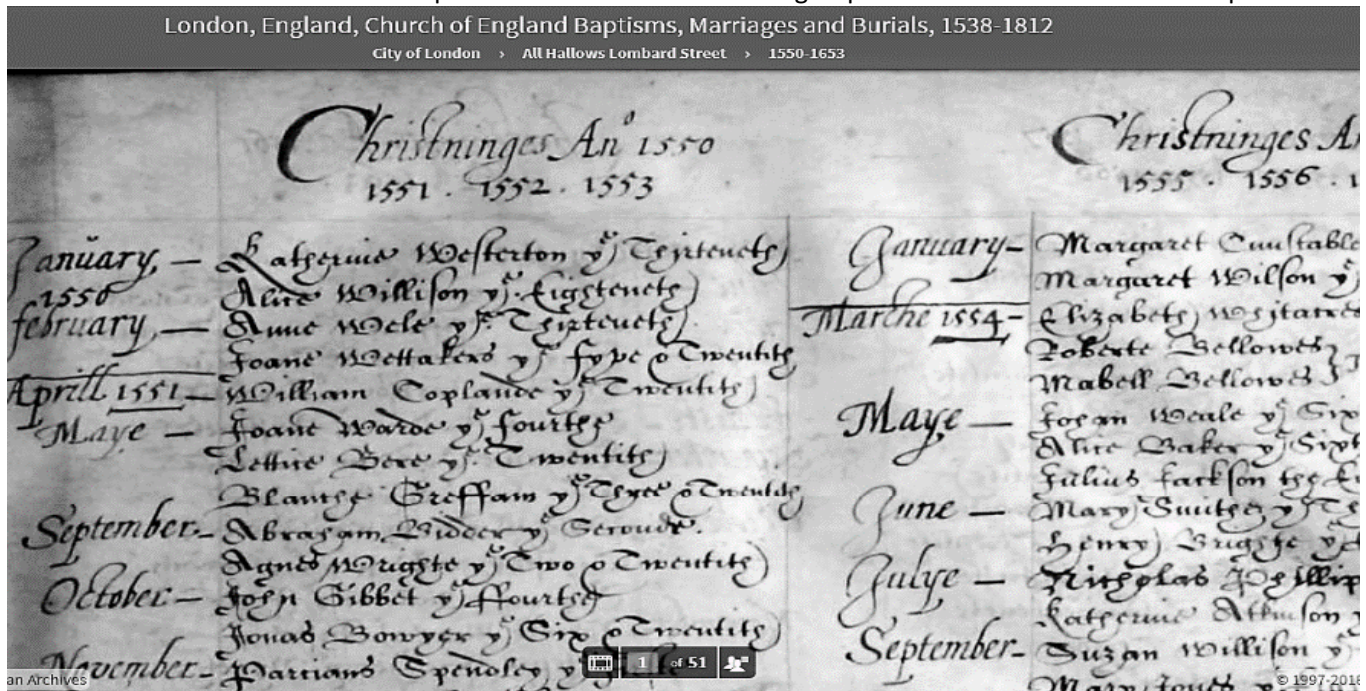 London, England, Church of England Baptisms, Marriages and Burials, 1538-1812
City of London › All Hallows Lombard Street › 1550-1653
Christninges Ano 1550
1551 . 1552 . 1553
January, — Katherine Westerton ye Thirteneth
1550 Alice Willison ye Eighteneth
february, — Anne Wele ye Thirteneth
Joane Wettakers ye fyve & Twentith
Aprill 1551 — William Coplande ye Twentith
Maye — Joane Warde ye fourthe
Lettice Bere ye Twentith
Blanche Greffam ye Three & Twentith
September - Abraham Bidder ye Seconde.
Agnes Wrighte ye Two & Twentith
October — John Gibbet ye ffourthe
Jonas Bowyer ye Six & Twentith
November - Spendley ye
Christninges A
1555 . 1556 . 1
January - Margaret Cunstable
Margaret Wilson ye
Marche 1554 - Elizabeth
Roberte Bellowes
Mabell Bellowes
Maye — Johan Weale ye Six
Alice Baker ye Sixt
Julius Jackson the
June — Mary Smithe ye Th
Henry Brighte ye
Julye — Nicholas Phillip
Katherine Atkinson y
September - Suzan Willison y
Mary Jones
1 of 51
an Archives
© 1997-2018